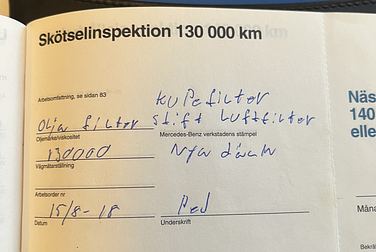 Skötselinspektion 130 000 km
Arbetsomfattning, se sidan 83
Kupefilter
Olja filter stift Luftfilter
Oljemärke/viskositet
Mercedes-Benz verkstadens stämpel
130000
Nya däck
Vägmätarställning
Arbetsorder nr
15/8-18
Datum
Underskrift
Näs
140
elle
Måna
Bekräf